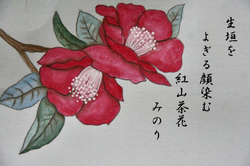 生垣を
よぎる顔染む
紅山茶花
みのり